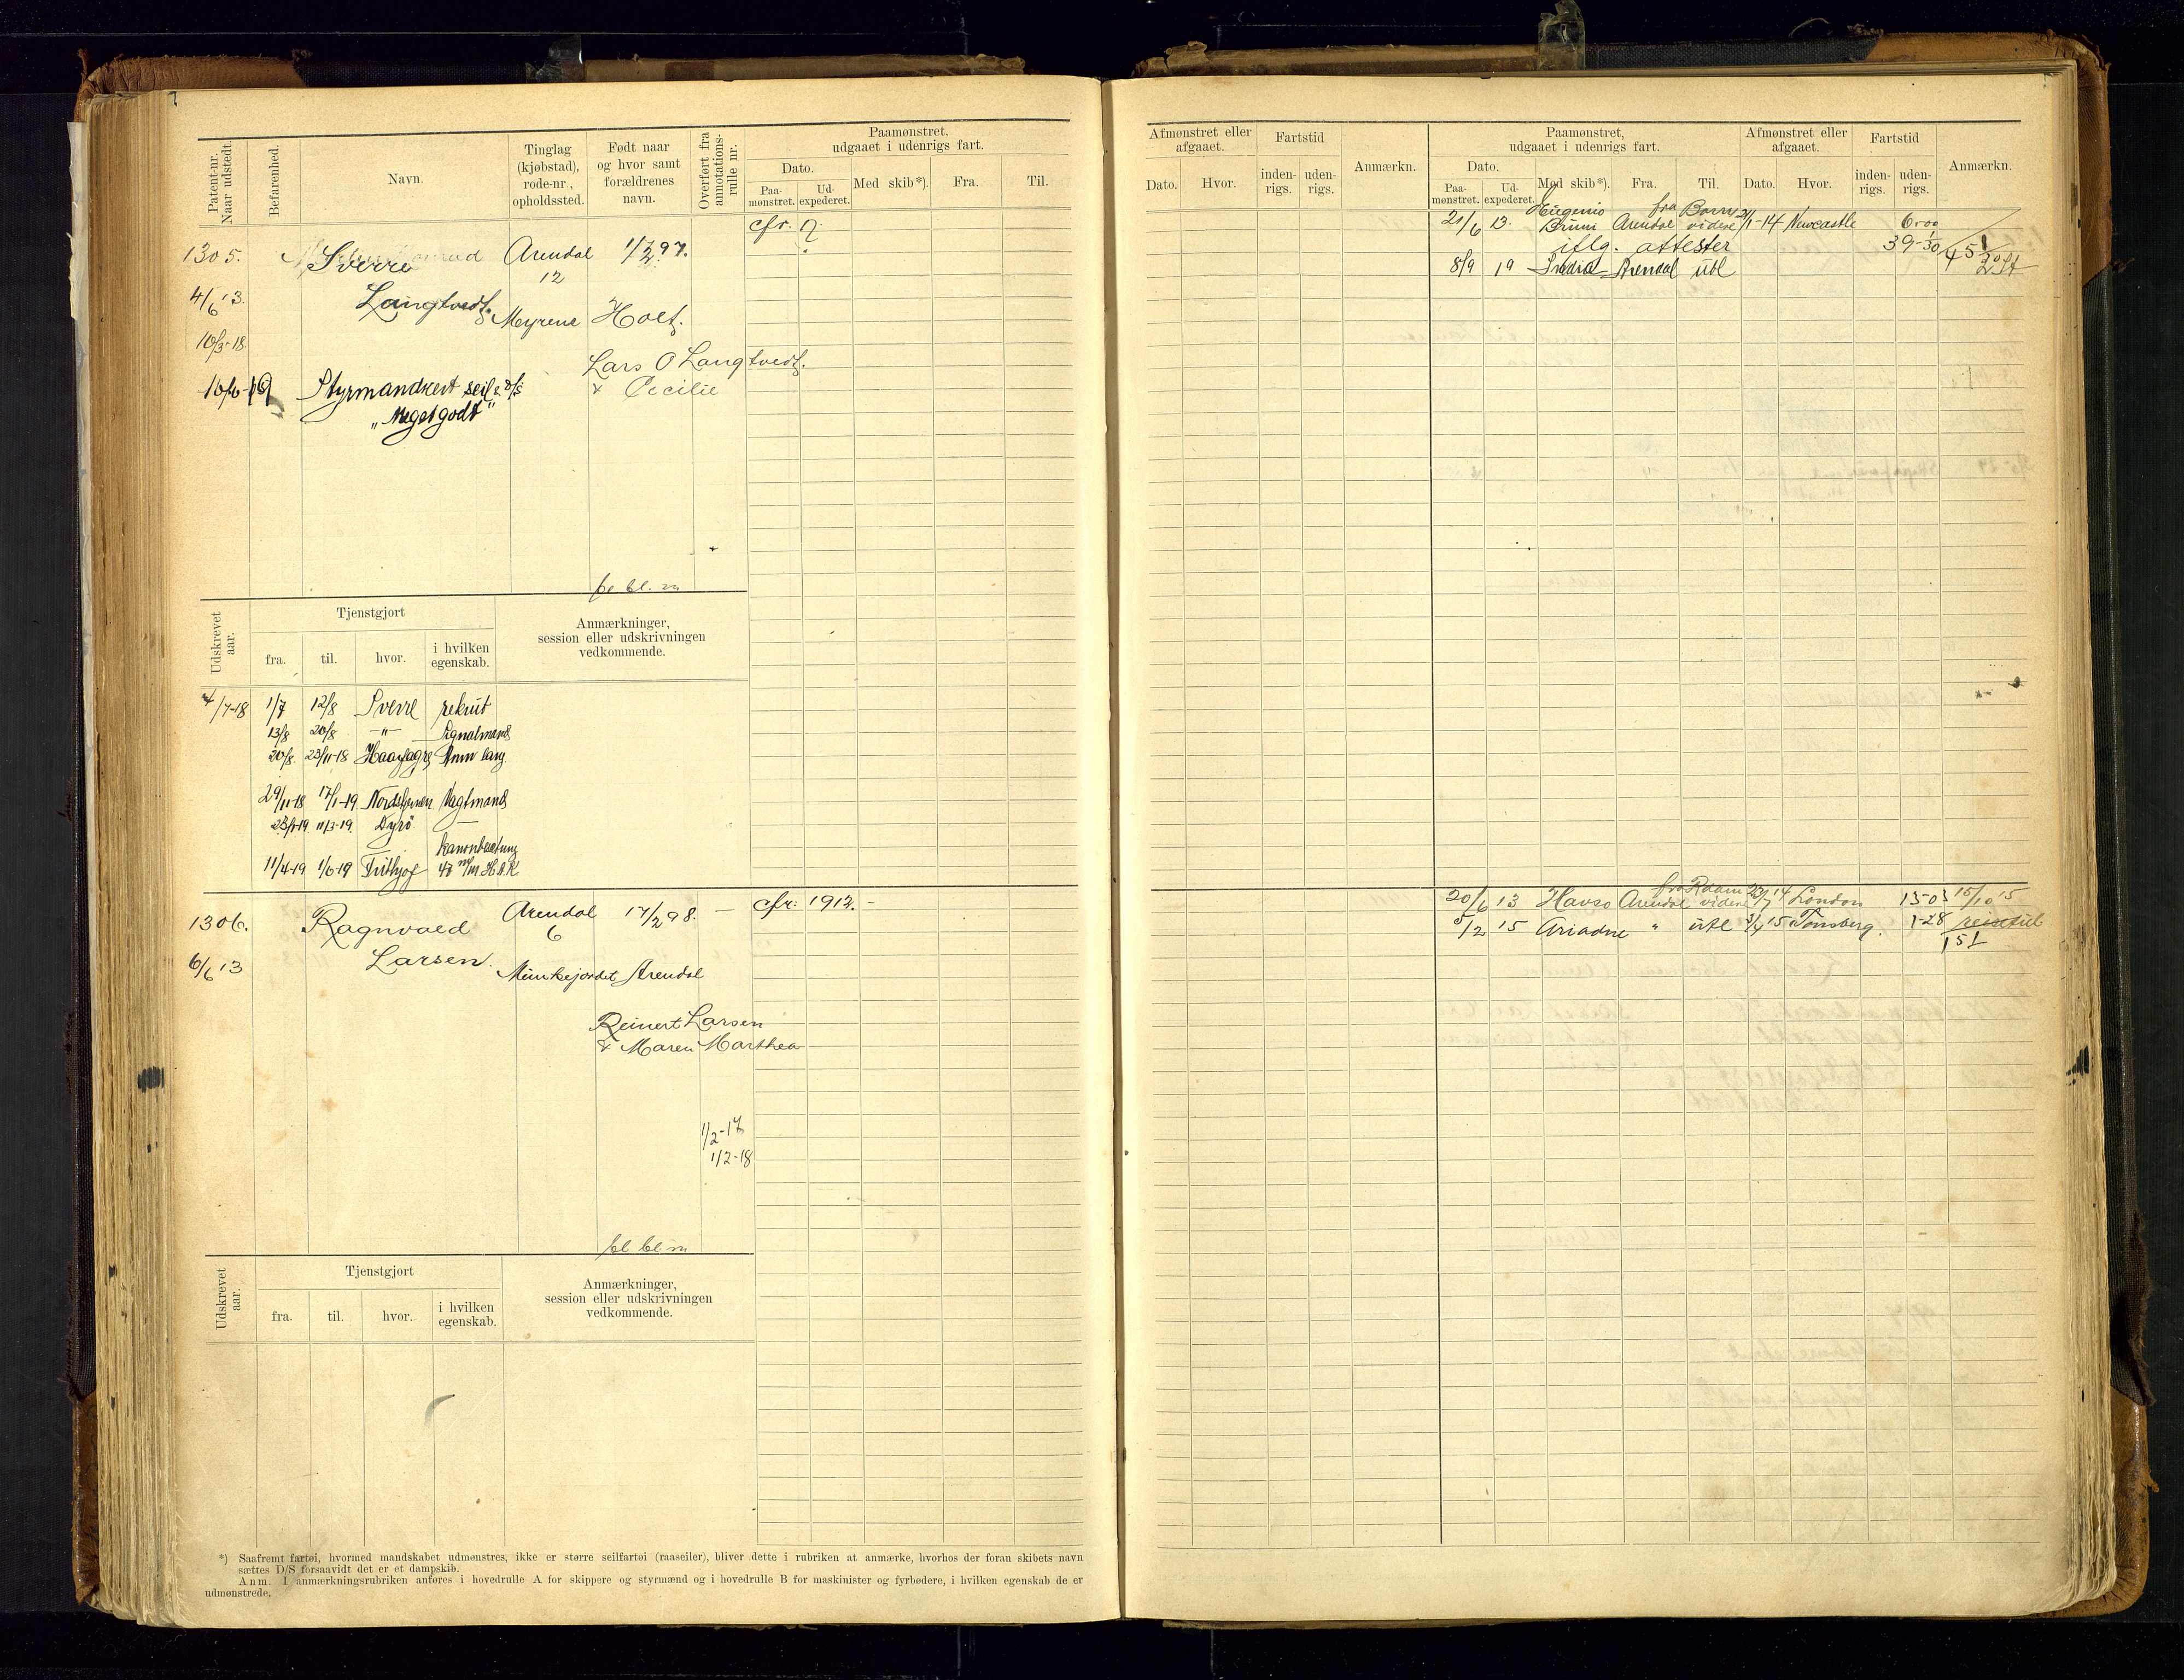 Patent-nr. Naar udstedt.
Befarenhed.
Navn.
Tinglag (kjøbstad), rode-nr., opholdssted.
Født naar og hvor samt forældrenes navn.
Overført fra annotations-rulle nr.
Paamønstret, udgaaet i udenrigs fart.
Dato.
Paa-mønstret.
Ud-expederet.
Med skib*).
Fra.
Til.
cfr. 7.
1305. Sverre Arendal 1/2 97.
12
4/6 13. Langtvedt. Myrene Holt.
10/3-18.
Lars O Langtvedt.
& Cecilie
10/6-19 Styrmandcert seil & d/s
"Meget godt"
bl. m
Udskrevet aar.
Tjenstgjort
fra.
til.
hvor.
i hvilken egenskab.
Anmærkninger, session eller udskrivningen vedkommende.
4/7-18 1/7 12/8 Sverre rekrut
13/8 20/8 -"- Signalmand
20/8. 23/11-18 Haarfagre
29/11-18 17/1-19 Vagtmand
11/3-19. Dyrø —
kanonbesetning
11/4-19 1/6-19 Frithjof 47 m/m H.K
1306. Ragnvald Arendal 17/2 98. — cfr: 1912. —
6
6/6 13 Larsen. Munkejordet Arendal
Reinert Larsen
& Maren Marthea
1/2-17
1/2-18
bl. m
Udskrevet aar.
Tjenstgjort
fra.
til.
hvor.
i hvilken egenskab.
Anmærkninger, session eller udskrivningen vedkommende.
*) Saafremt fartøi, hvormed mandskabet udmønstres, ikke er større seilfartøi (raaseiler), bliver dette i rubriken at anmærke, hvorhos der foran skibets navn
sættes D/S forsaavidt det er et dampskib.
Anm. I anmærkningsrubriken anføres i hovedrulle A for skippere og styrmænd og i hovedrulle B for maskinister og fyrbødere, i hvilken egenskab de er
udmønstrede.
Afmønstret eller afgaaet.
Dato.
Hvor.
Fartstid
inden-rigs.
uden-rigs.
Anmærkn.
Paamønstret, udgaaet i udenrigs fart.
Dato.
Paa-mønstret.
Ud-expederet.
Med skib*).
Fra.
Til.
Afmønstret eller afgaaet.
Dato.
Hvor.
Fartstid
inden-rigs.
uden-rigs.
Anmærkn.
fra
21/6 13. Arendal videre 2/1-14 Newcastle 6-00
iflg. attester 39-30
8/9 19 India Arendal utl
fra
20/6 13 Havsø Arendal videre 14 London 15-03 15/10 15
5/2 15 Ariadne " utl 3/4 15 Tønsberg. 1-28